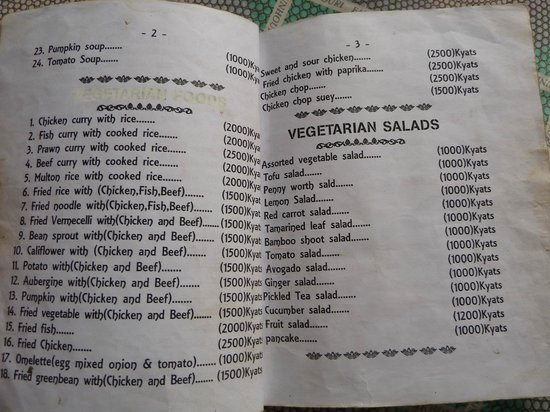 - 2 -
23. Pumpkin soup....... (1000)Kyats
24. Tomato Soup....... (1000)Kyats
VEGETARIAN FOODS
1. Chicken curry with rice....... (2000)Kyats
2. Fish curry with cooked rice....... (2000)Kyats
3. Prawn curry with cooked rice....... (2500)Kyats
4. Beef curry with cooked rice....... (2000)Kyats
5. Multon rice with cooked rice....... (2000)Kyats
6. Fried rice with(Chicken,Fish,Beef)....... (1500)Kyats
7. Fried noodle with(Chicken,Fish,Beef)....... (1500)Kyats
8. Fried Vermecelli with(Chicken and Beef)....... (1500)Kyats
9. Bean sprout with(Chicken and Beef)....... (1500)Kyats
10. Califlower with (Chicken and Beef)....... (1500)Kyats
11. Potato with(Chicken and Beef)....... (1500)Kyats
12. Aubergine with(Chicken and Beef)....... (1500)Kyats
13. Pumpkin with(Chicken and Beef)....... (1500)Kyats
14. Fried vegetable with(Chicken and Beef)....... (1500)Kyats
15. Fried fish....... (2000)Kyats
16. Fried Chicken....... (2500)Kyats
17. Omelette(egg mixed onion & tomato)....... (1000)Kyats
18. Fried greenbean with(Chicken and Beef)....... (1500)Kyats
- 3 -
Sweet and sour chicken....... (2500)Kyats
Fried chicken with paprika....... (2500)Kyats
Chicken chop....... (2500)Kyats
Chicken chop suey....... (1500)Kyats
VEGETARIAN SALADS
Assorted vegetable salad....... (1000)Kyats
Tofu salad....... (1000)Kyats
Penny worth sald....... (1000)Kyats
Lemon Salad....... (1000)Kyats
Red carrot salad....... (1000)Kyats
Tamarined leaf salad....... (1000)Kyats
Bamboo shoot salad....... (1000)Kyats
Tomato salad....... (1000)Kyats
Avogado salad....... (1000)Kyats
Ginger salad....... (1000)Kyats
Pickled Tea salad....... (1000)Kyats
Cucumber salad....... (1000)Kyats
Fruit salad....... (1200)Kyats
pancake....... (1000)Kyats